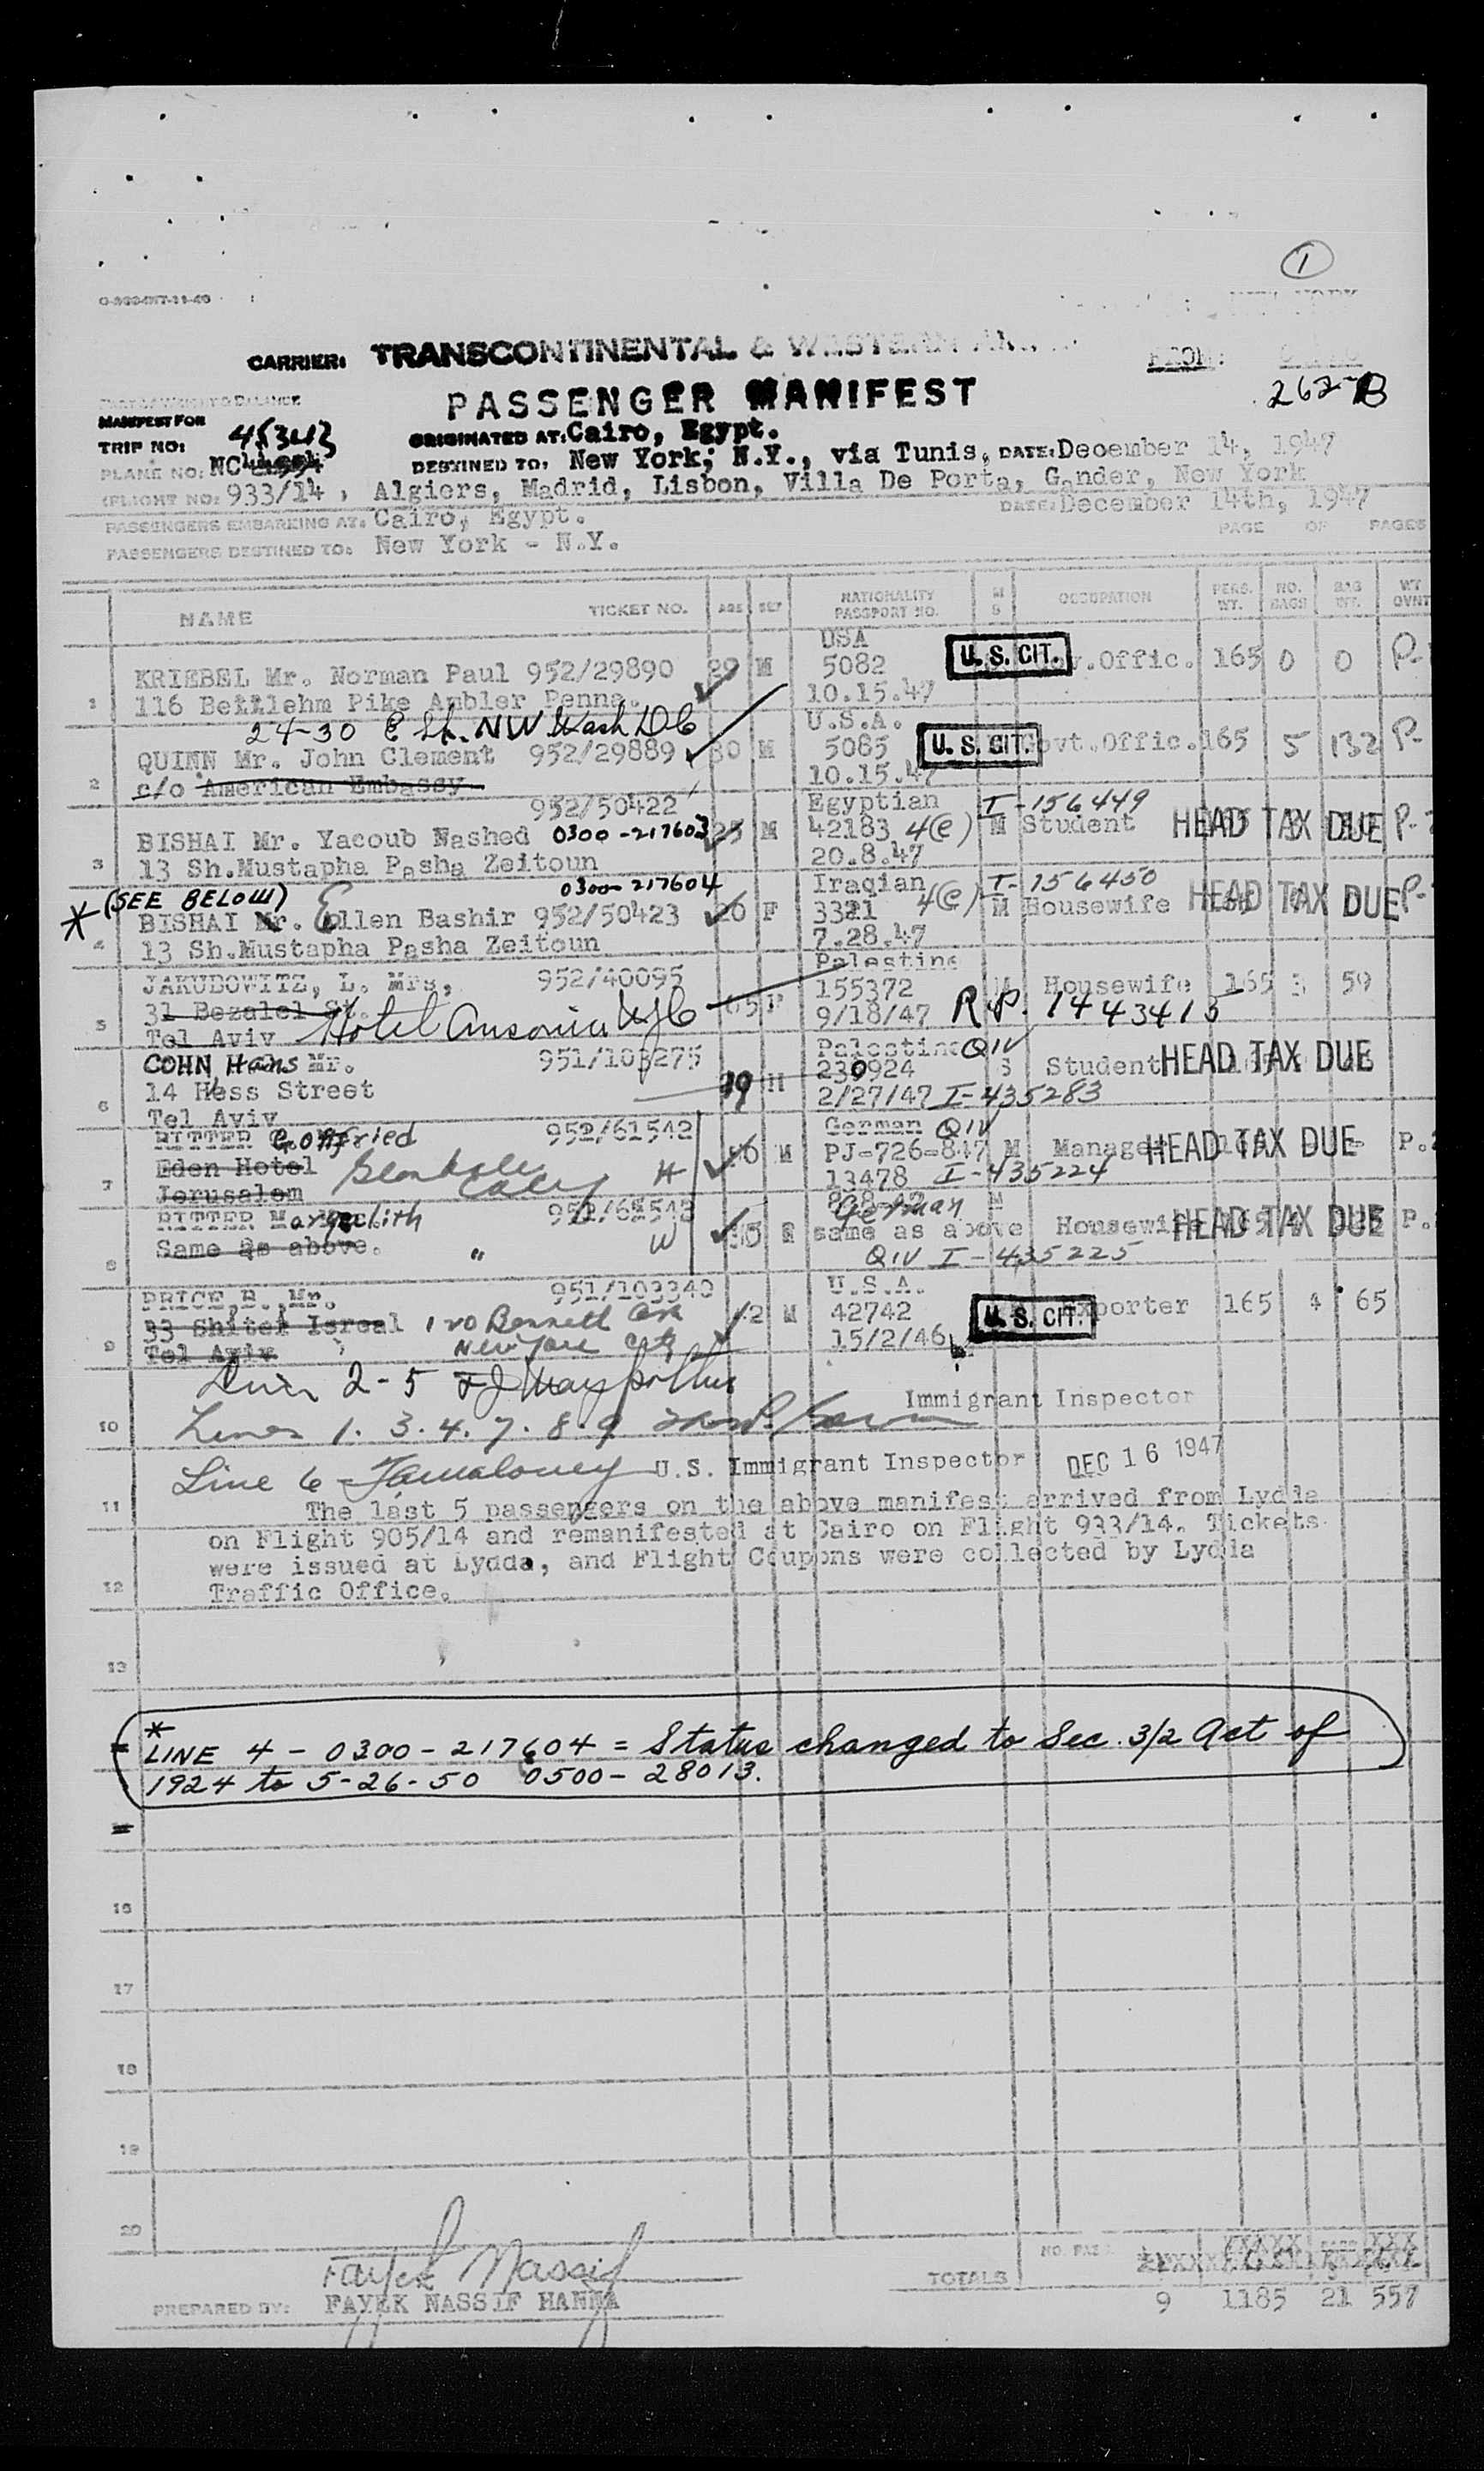 1
CARRIER: TRANSCONTINENTAL & WESTERN
FROM:
262-B
PASSENGER MANIFEST
MANIFEST FOR
TRIP NO: 45343
ORIGINATED AT: Cairo, Egypt.
PLANE NO: NC
DESTINED TO: New York, N.Y., via Tunis, DATE: December 14, 1947
FLIGHT NO: 933/14, Algiers, Madrid, Lisbon, Villa De Porta, Gander, New York
PASSENGERS EMBARKING AT: Cairo, Egypt. DATE: December 14th, 1947
PASSENGERS DESTINED TO: New York - N.Y. PAGE OF PAGES
NAME TICKET NO. AGE SEX NATIONALITY PASSPORT NO. M S OCCUPATION PERS. WT. NO. BAGS BAG WT. WT
USA
KRIEBEL Mr. Norman Paul 952/29890 29 M 5082 U.S. CIT. v.Offic. 165 0 0 P-
1 116 Bethlehm Pike Ambler Penna. 10.15.47
24-30 E St. NW Wash DC U.S.A.
QUINN Mr. John Clement 952/29889 30 M 5085 U.S. CIT. ovt.Offic. 165 5 132 P-
2 c/o American Embassy 10.15.47
952/50422 Egyptian I-156449
BISHAI Mr. Yacoub Nashed 0300-217603 25 M 42183 4(e) M Student HEAD TAX DUE P-
3 13 Sh.Mustapha Pasha Zeitoun 20.8.47
* (SEE BELOW) 0300-217604 Iraqian I-156450
BISHAI Mr. Ellen Bashir 952/50423 26 F 3321 4(e) M Housewife HEAD TAX DUE P-
4 13 Sh.Mustapha Pasha Zeitoun 7.28.47
Palestine
JAKUBOWITZ, L. Mrs, 952/40095 65 F 155372 M Housewife 165 3 59
31 Bezalel St. 9/18/47 R.P. 1443415
5 Tel Aviv Hotel Ansonia NYC
COHN Hans Mr. 951/103275 Palestine QIV
14 Hess Street 19 M 230924 S Student HEAD TAX DUE
6 Tel Aviv 2/27/47 I-435283
RITTER Gottfried 952/61542 German QIV
Eden Hotel Glendale M PJ-726-847 M Manager HEAD TAX DUE P.
7 Jerusalem Calif H 13478 I-435224
RITTER 952/61543 German M
Same as above. " W F same as above Housewife HEAD TAX DUE P.
8 QIV I-435225
PRICE, B. Mr. 951/103340 U.S.A.
33 Shiter Isreal 120 Bennett Ave M 42742 U.S. CIT. xporter 165 4 65
9 Tel Aviv New York City 15/2/46
2-5 Immigrant Inspector
10 Lines 1. 3. 4. 7. 8. 9
Line 6 - U.S. Immigrant Inspector DEC 16 1947
11 The last 5 passengers on the above manifest arrived from Lydda
on Flight 905/14 and remanifested at Cairo on Flight 933/14. Tickets
were issued at Lydda, and Flight Coupons were collected by Lydda
12 Traffic Office.
13
*
LINE 4 - 0300-217604 = Status changed to Sec. 3/2 Act of
1924 to 5-26-50 0500-28013.
16
17
18
19
20
Fayek Nassif
NO. PASS
TOTALS
PREPARED BY: FAYEK NASSIF HANNA 9 1185 21 557